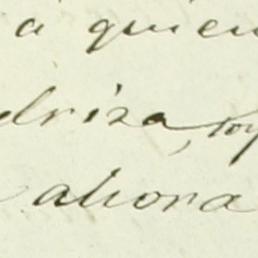 á quien
driza,
ahora